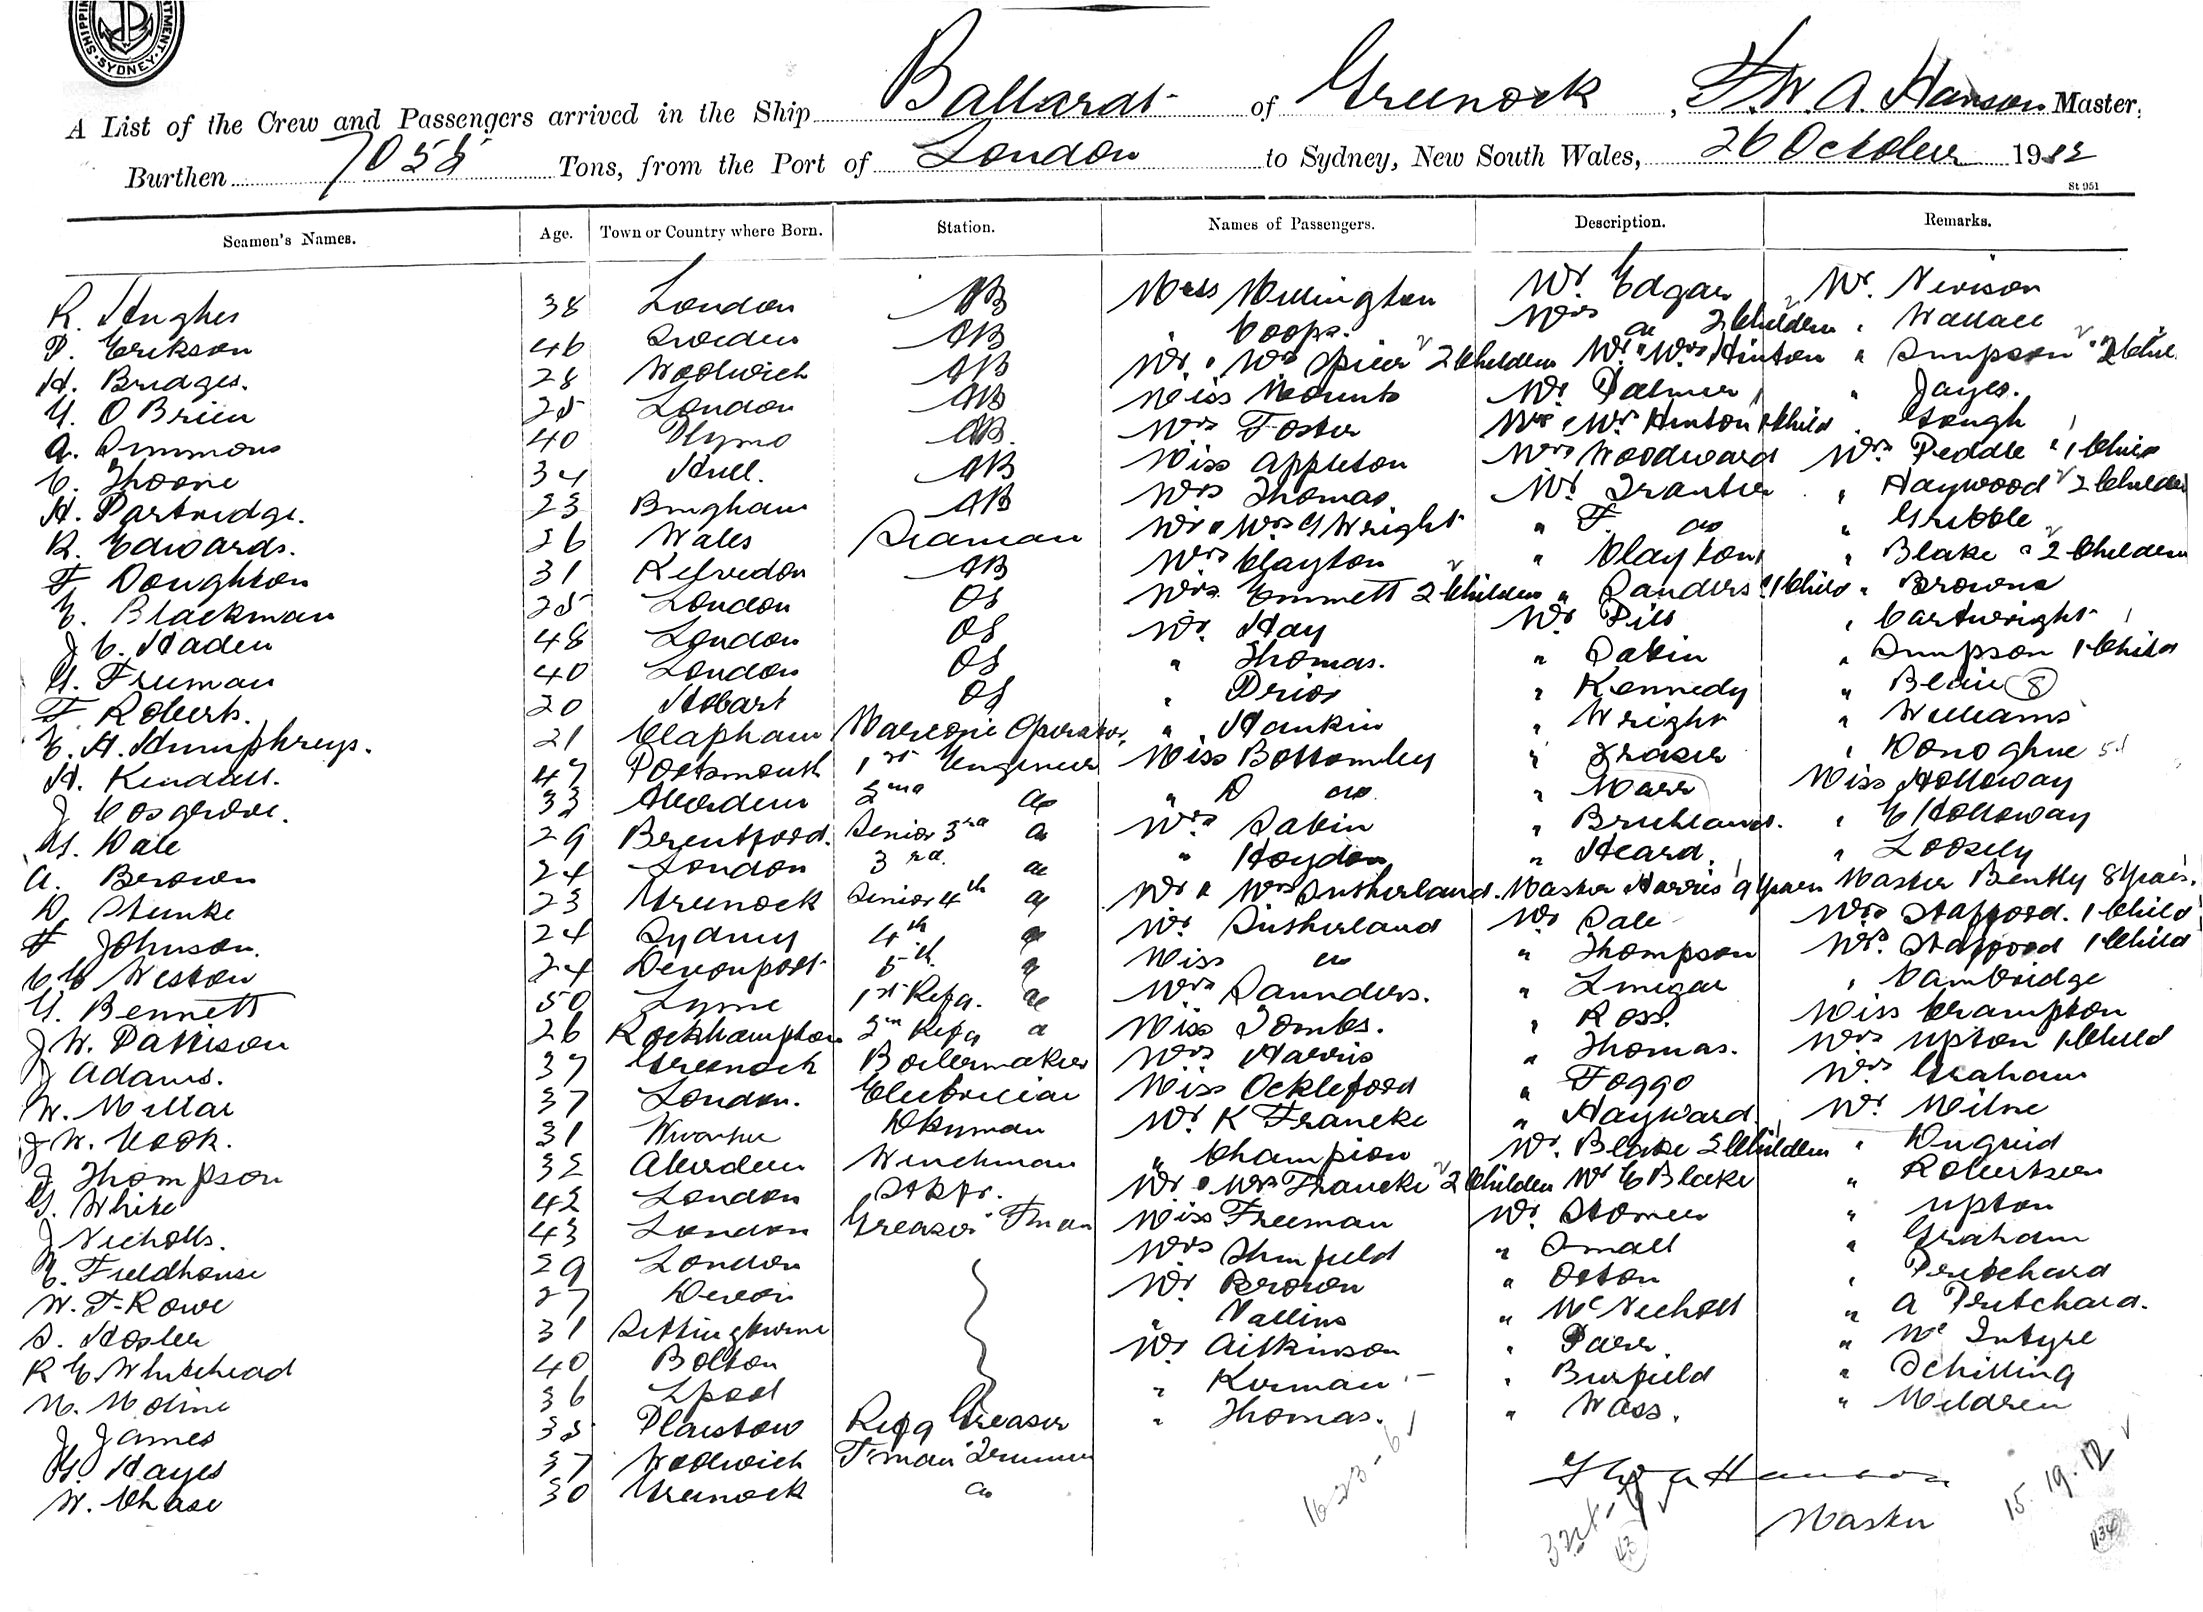 SHIPPING DEPARTMENT · SYDNEY ·
A List of the Crew and Passengers arrived in the Ship Ballarat of Greenock, F. W. A. Hanson Master,
Burthen 7055 Tons, from the Port of London to Sydney, New South Wales, 26 October 19
St 951
Seamen's Names. Age. Town or Country where Born. Station. Names of Passengers. Description. Remarks.
R. Hughes 38 London AB Miss Millington Mr. Edgar Mr. Nevison
P. Erikson 46 Sweden AB " Coops. Mrs do 2 Children " Wallace
H. Bridges. 28 Woolwich AB Mr. & Mrs Spier 2 Children Mr. & Mrs Hinton " Simpson & 2 Chil
G. O Brien 25 London AB Miss Mounts Mr Palmer " Jayes.
A. Simmons 40 Plymo AB. Mrs Foster Hinton 1 Child Gough
C. Thorne 34 Hull. AB Miss Appleton Mrs Woodward Mrs. Peddle & 1 Child
H. Partridge. 23 Bingham AB Mrs Thomas Mr. Tranter " Haywood 2 Children
R. Edwards. 26 Wales Seaman Mr & Mrs G Wright " F. do " Gribble
F Doughton 31 Kelvedon AB Mrs Clayton " Clayton " Blake & 2 Children
E. Blackman 25 London OS Mrs. Emmett 2 Children " Sanders 1 Child " Browne
J C. Haden 48 London OS Mr. Hay Mr Pill " Cartwright
G. Freeman 40 London OS " Thomas. " Sabin " Simpson 1 Child
F Roberts. 20 Hobart OS " Prior " Kennedy " Blair 8
E. H. Humphreys. 21 Clapham Marconi Operator " Hankin " Wright " Williams
H. Kendall. 47 Portsmouth 1st Engineer Miss Bottomley " Fraser " Donoghue
J Cosgrove. 33 Aberdeen 2nd do " D do " Marr Miss Holloway
G. Dale 29 Brentford. Senior 3rd do Mrs. Sabin " " E Holloway
A. Brown 24 London 3rd. do " Hoydon " Heard. " Loosely
D. 23 Greenock Senior 4th do Mr & Mrs Sutherland. Master Harris 9 years Master Bently 8 years.
F Johnson. 24 Sydney 4th do Mr. Sutherland Mr Sale Mrs Stafford. 1 Child
C C Weston 24 Devonport 5th do Miss do " Thompson Mrs. Stafford 1 Child
G. Bennett 50 Lyme 1st Refg. do Mrs Saunders. " " Cambridge
J W. Pattison 26 Rockhampton 2nd Refg do Miss Tombs. " Ross. Miss Crampton
J Adams. 37 Greenock Boilermaker Mrs Harris " Thomas. Mrs Upton 1 Child
W. Millar 37 London. Electrician Miss Ockleford " Foggo Mrs Graham
J W. Cook. 31 Dkyman Mr. K Francke " Hayward Mr. Milne
J Thompson 32 Aberdeen Winchman " Champion Mr. Blake 2 Children " Duguid
G. White 42 London Stkpr. Mr & Mrs Francke 2 Children Mr E Blake " Robertson
J Nicholls. 43 London Greaser Fman Miss Freeman Mr. " Upton
E. Fieldhouse 29 London Mrs " Small " Graham
W. F. Rowe 27 Devon Mr Brown " Octon " Pritchard
S. Hosler 31 Sittingburne " Vallins " McNicholl " A Pritchard.
R E Whitehead 40 Bolton Mr. Aitkinson " Parr. " McIntyre
M. Moline 36 Lpool " Kerman " Burfield " Schilling
J James 35 Plaistow Refg Greaser " Thomas. " Wass. " Meldren
G. Hayes 37 Woolwich Fman Trimmer
W. Chase 30 Greenock do
Hanson
Master
16-23-6
15.19.12
43
1134